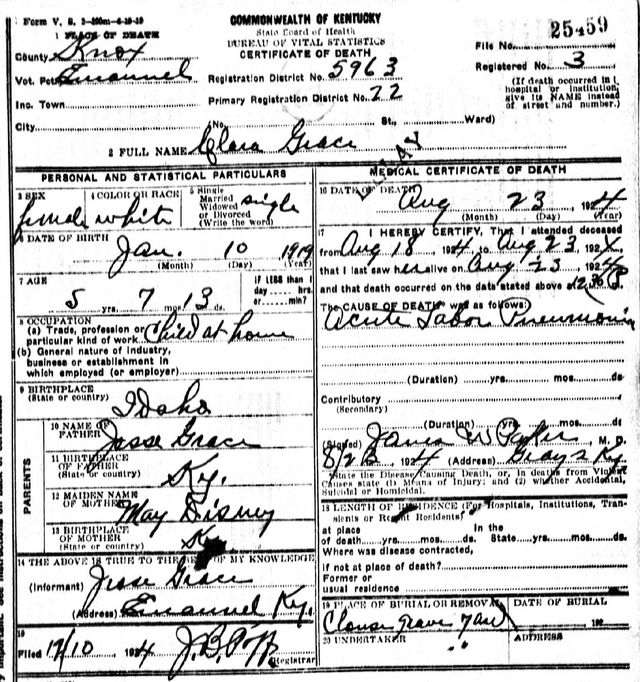 Form V. S. 2-100m-6-19-19
COMMONWEALTH OF KENTUCKY
State Board of Health
BUREAU OF VITAL STATISTICS
CERTIFICATE OF DEATH
25459
1 PLACE OF DEATH
County Knox
Vot. Pct. Emanuel
Inc. Town
City
Registration District No. 5963
Primary Registration District No. 22
(No. St., Ward)
File No.
Registered No. 3
(If death occurred in a
hospital or institution,
give its NAME instead
of street and number.)
2 FULL NAME Clara Grace
DELAY
PERSONAL AND STATISTICAL PARTICULARS
3 SEX
female
4 COLOR OR RACE
white
5 Single
Married
Widowed
or Divorced
(Write the word)
single
6 DATE OF BIRTH
Jan. 10 1919
(Month) (Day) (Year)
7 AGE
5 yrs. 7 mos. 13 ds.
IF LESS than 1
day ----- hrs.
or ----- min?
8 OCCUPATION
(a) Trade, profession or
particular kind of work Child at home
(b) General nature of industry,
business or establishment in
which employed (or employer)
9 BIRTHPLACE
(State or country)
Idaho
PARENTS
10 NAME OF
FATHER
Jesse Grace
11 BIRTHPLACE
OF FATHER
(State or country)
Ky.
12 MAIDEN NAME
OF MOTHER
May Disney
13 BIRTHPLACE
OF MOTHER
(State or country)
Ky.
14 THE ABOVE IS TRUE TO THE BEST OF MY KNOWLEDGE
(Informant) Jesse Grace
(Address) Emanuel Ky.
15
Filed 12/10 1924 J.B.
Registrar
MEDICAL CERTIFICATE OF DEATH
16 DATE OF DEATH
Aug 23, 1924
(Month) (Day) (Year)
17 I HEREBY CERTIFY, That I attended deceased
from Aug 18 1924, to Aug 23, 1924,
that I last saw her alive on Aug 23 1924
and that death occurred on the date stated above at 12.30 P.
The CAUSE OF DEATH was as follows:
Acute Labor Pneumonia
(Duration) yrs. mos. ds.
Contributory
(Secondary)
(Duration) yrs. mos. ds.
(Signed) James W Parker, M. D.
8/23 1924 (Address) Grays Ky
State the Disease Causing Death, or, in deaths from Violent
Causes state (1) Means of Injury; and (2) whether Accidental,
Suicidal or Homicidal.
18 LENGTH OF RESIDENCE (For Hospitals, Institutions, Tran-
sients or Recent Residents)
at place In the
of death yrs. mos. ds. State yrs. mos. ds.
Where was disease contracted,
if not at place of death?
Former or
usual residence
19 PLACE OF BURIAL OR REMOVAL
Clouse grave yard
DATE OF BURIAL
192
20 UNDERTAKER
ADDRESS